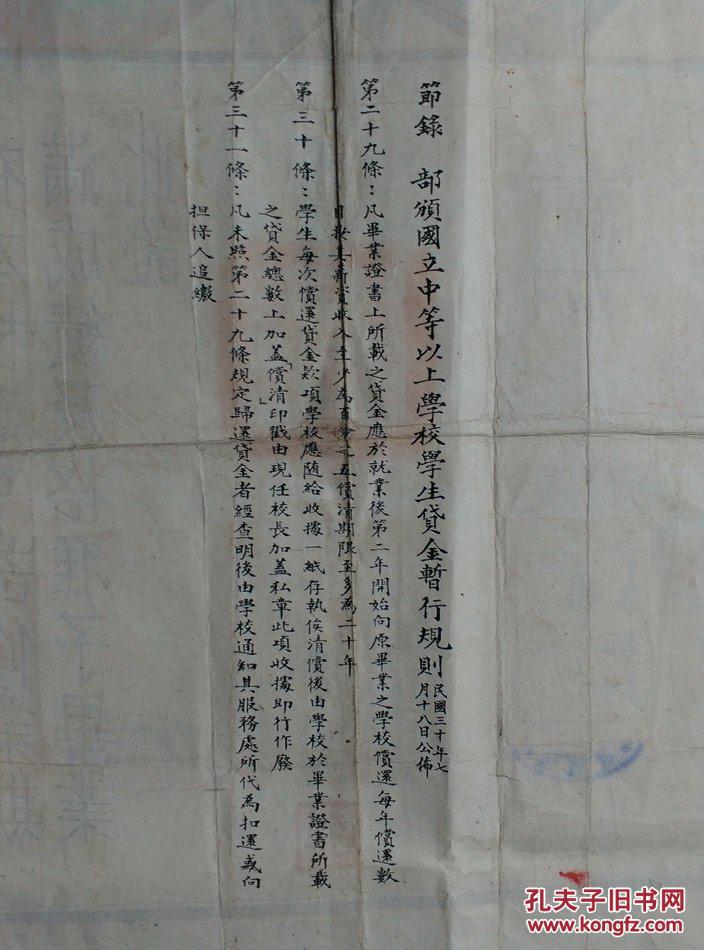 節錄 部頒國立中等以上學校學生貸金暫行規則 民國三十年七
月十八日公佈
第二十九條：凡畢業證書上所載之貸金應於就業後第二年開始向原畢業之學校償還每年償還數
目按其薪資收入至少為百分之五償清期限至多為二十年
第三十條：學生每次償還貸金欵項學校應隨給收據一紙存執俟清償後由學校於畢業證書所載
之貸金總數上加蓋「償清」印戳由現任校長加蓋私章此項收據即行作廢
第三十一條：凡未照第二十九條規定歸還貸金者經查明後由學校通知其服務處所代為扣還或向
担保人追繳
孔夫子旧书网
www.kongfz.com